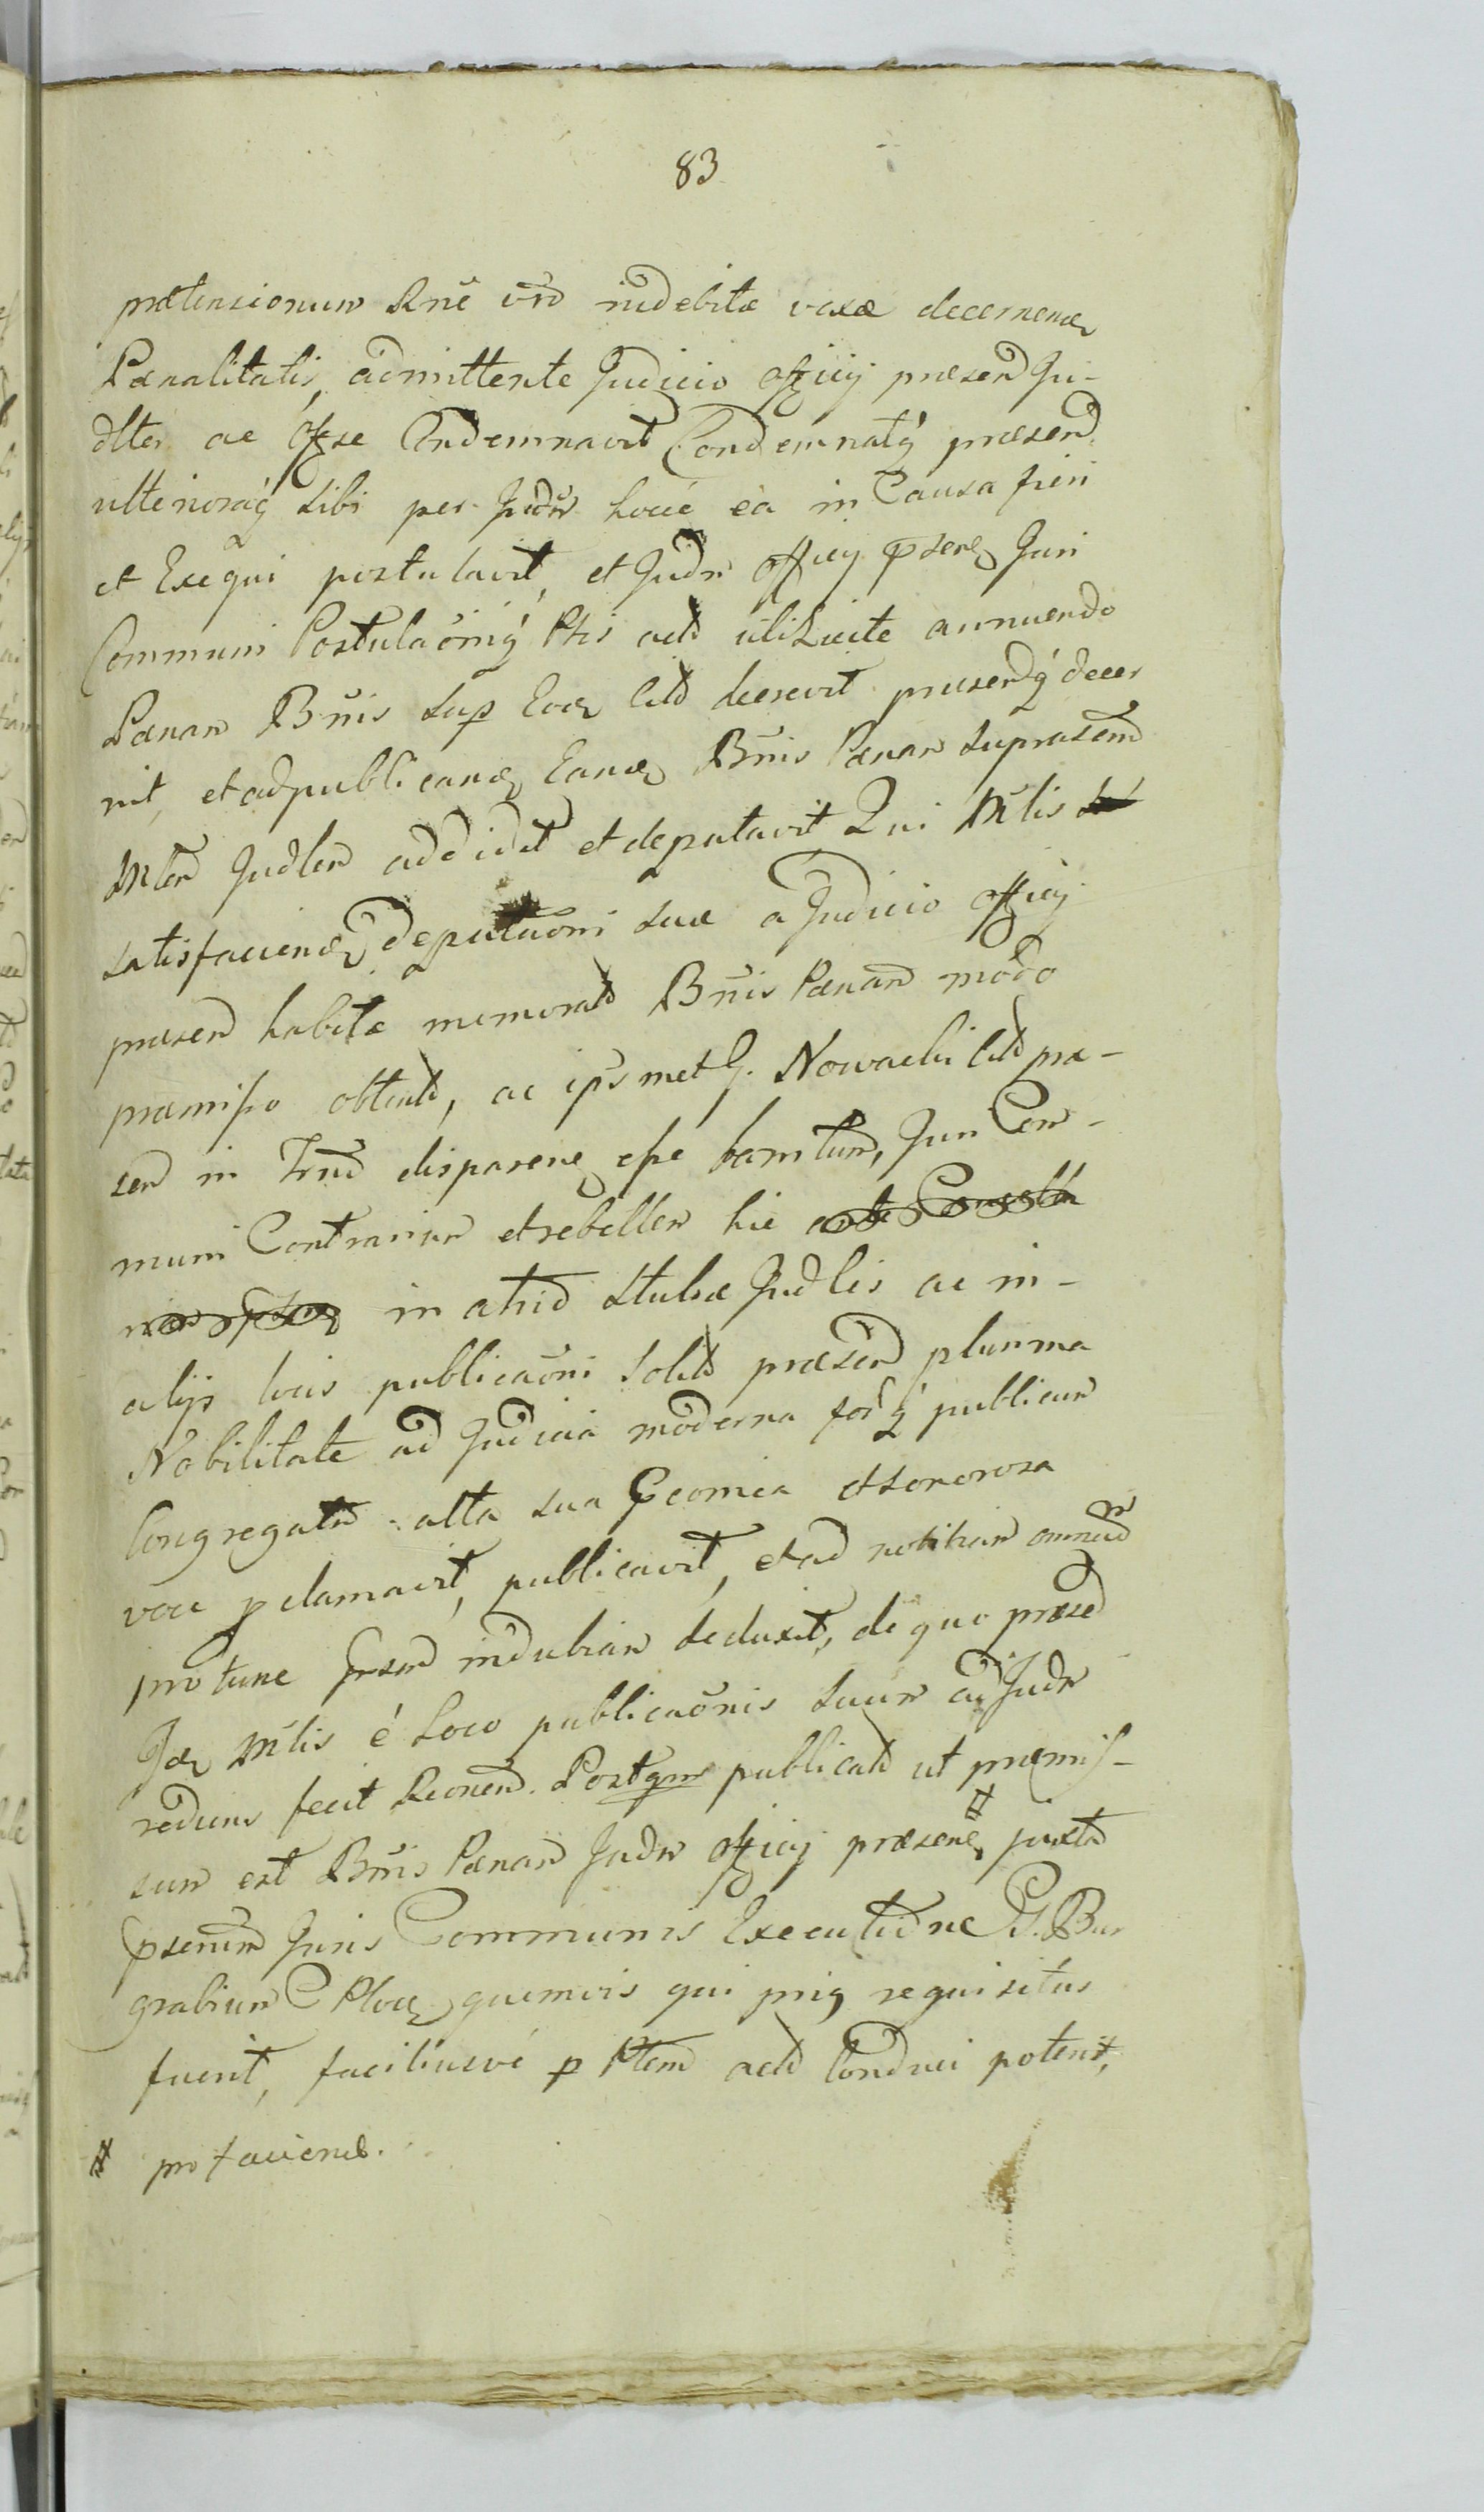 83
prætensionum Rne vro indebitæ vexæ decernend
Pænalitatis, admittente Judicio officij præsen Ju-
dlter ac offse Condemnavit Condemnatq præsen
ulterioraq sibi per Judm hocce ea in Causa fieri
et Exequi postulavit, et Judm officij psens Juri
Communi Postulaoniq Ptis actd uti Licite annuendo
Pænam Bnis sup Eod citd decrevit præsenq decer
nit, et ad publicand Eand Bnis Pænam suprasem
Mlem Judlem addidit et deputavit Qui Mlis
satisfaciend deputaoni suæ a Judicio officij
præsen habitæ memoratd Bnis Pænam modo
præmisso obtentd, ac ipsmet G. Nowacki citd præ-
sen in Trnd disparend esse bannitum, Juri Com-
muni Contrarium et rebellem hic
in atrio Stubæ Judlis ac in-
alijs locis publicaoni solitd præsend plurima
Nobilitate ad Judicia moderna forq publicum
Congregatd alta sua Præconica et sonorosa
voce pclamavit, publicavit, et ad notitiam omnium
pro tunc psend indubiam deduxit, de quo præsed
Jdq Mlis é Loco publicaonis suum ad Judm
rediens fecit Rcionem. Postqm publicatd ut præmis-
sum est Bnis Pænam Judm officij præsens # juxtd
pscriptm Juris Communis Executione G. Bur
grabium C Ploc quemvis qui prig requisitus
fuerit, faciliusvé p Ptem actd Conduci poterit,
# pro faciend.